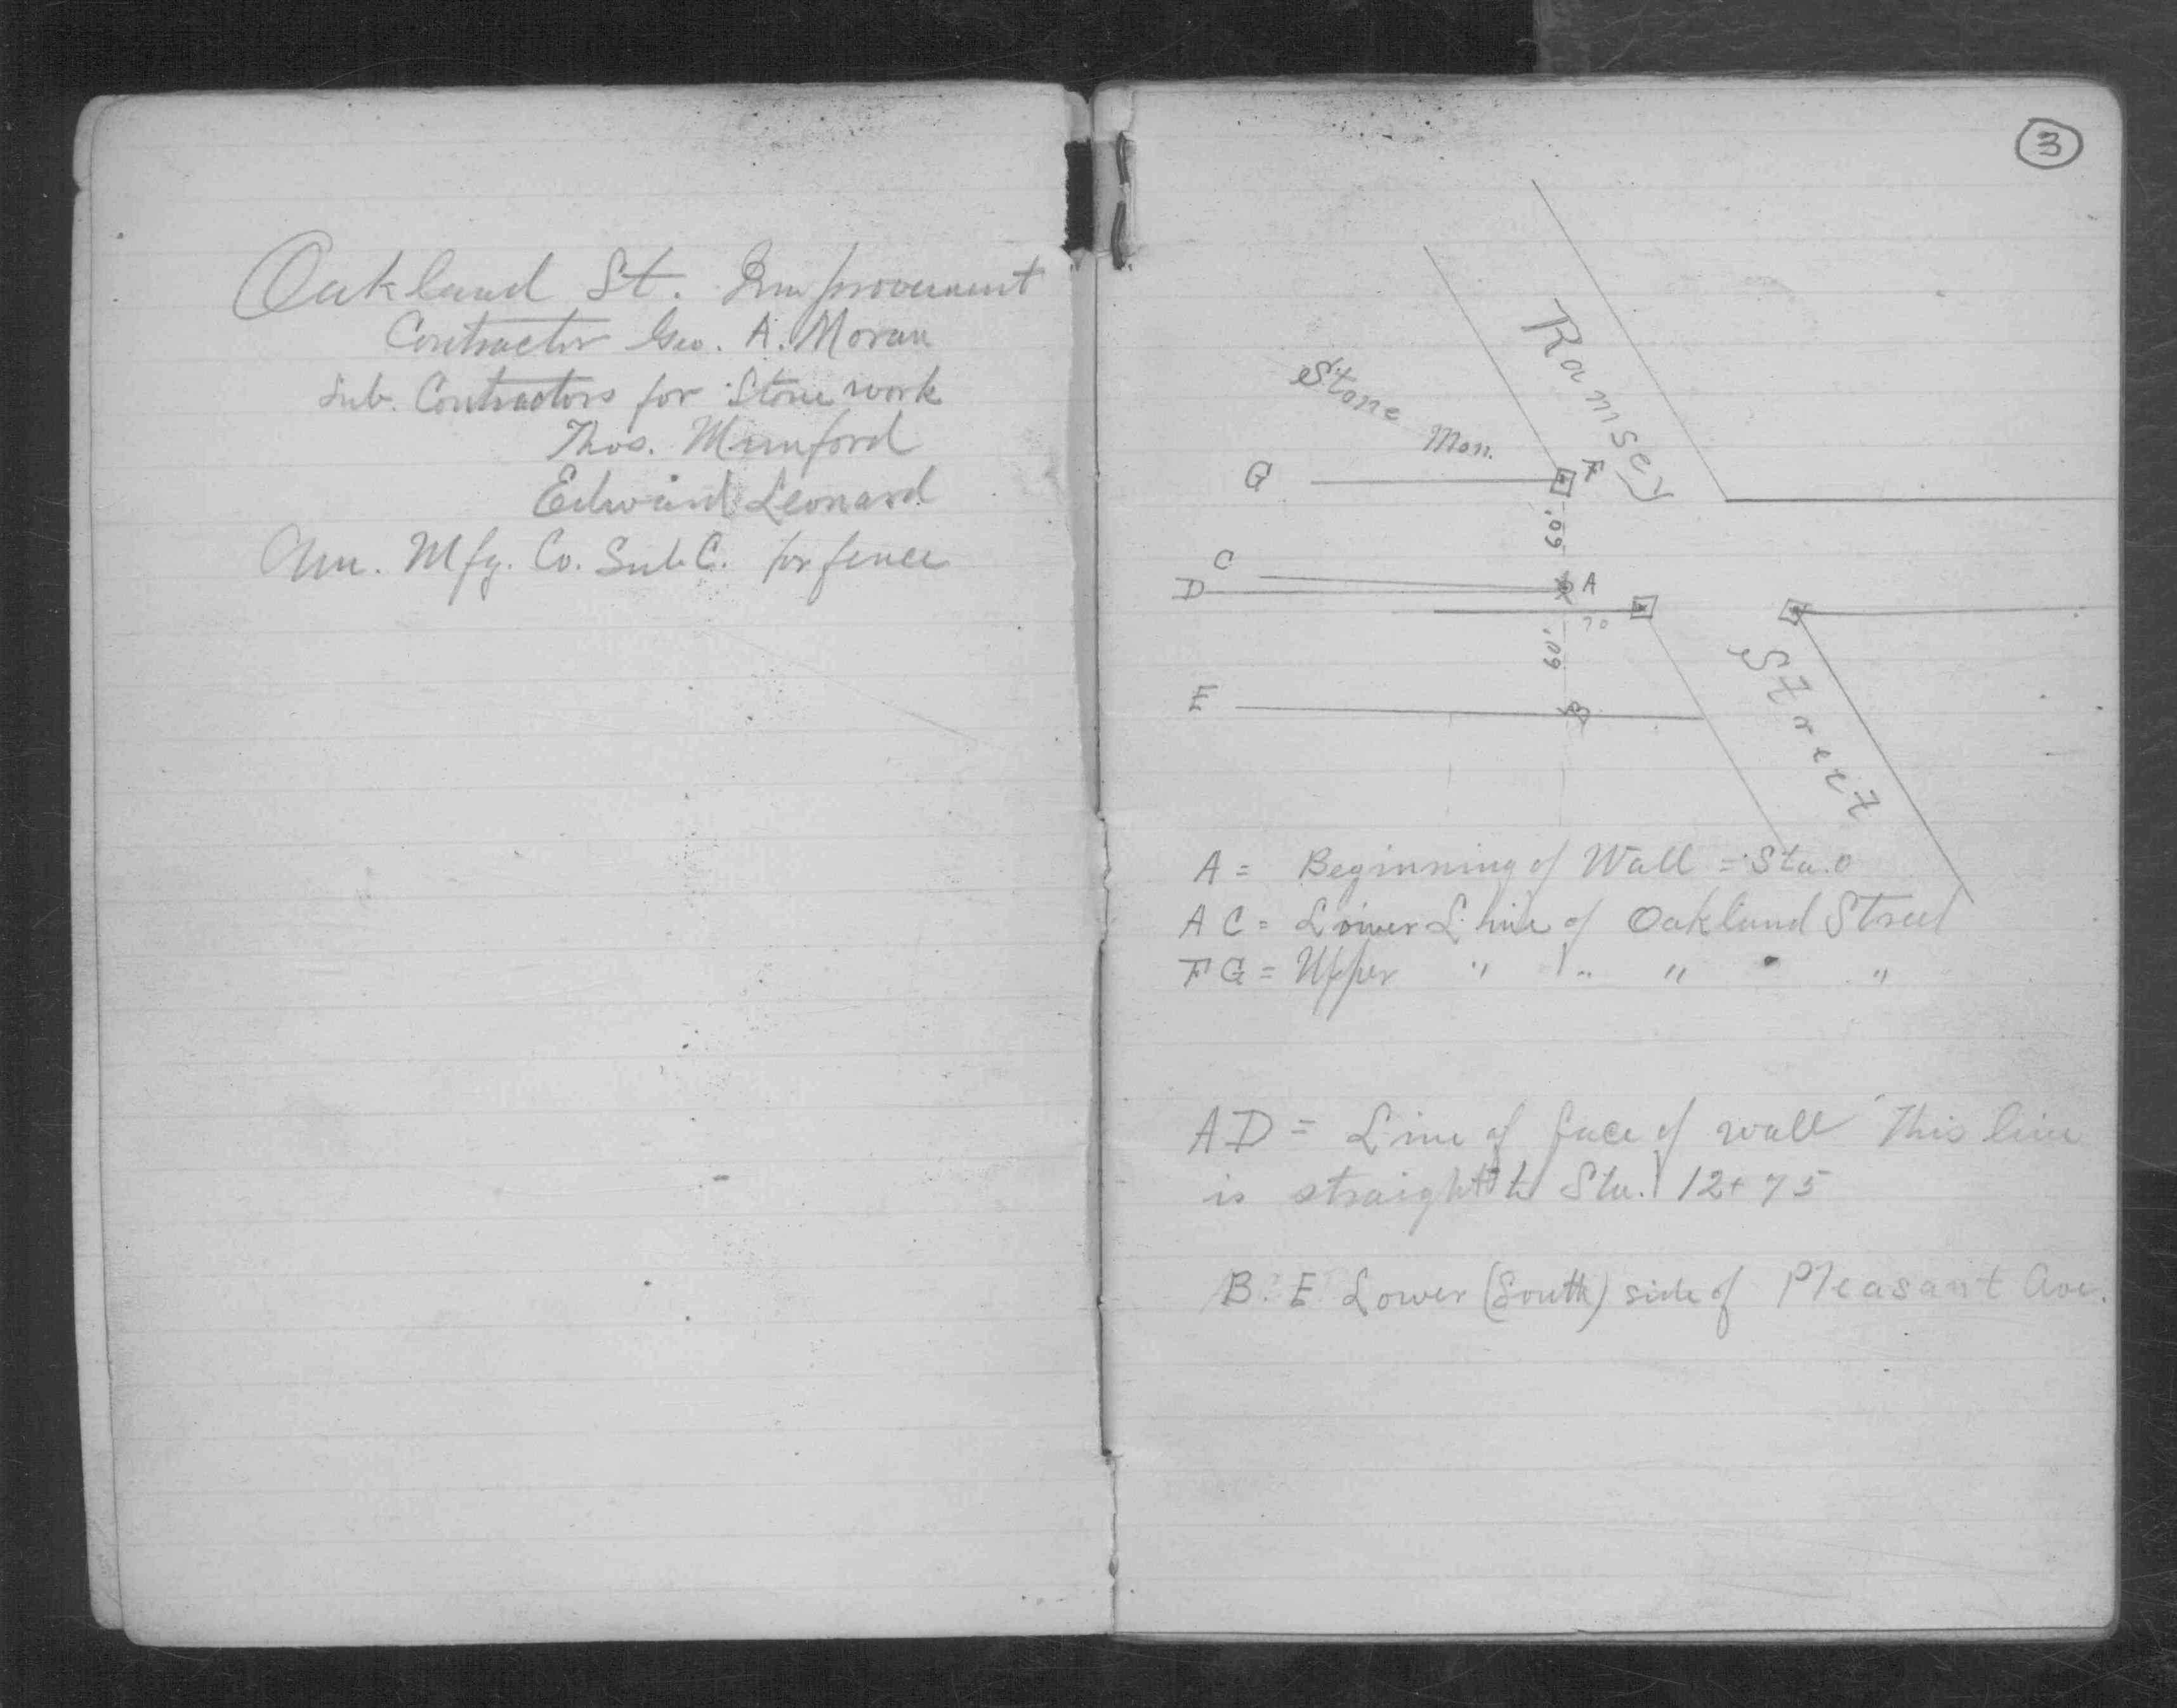 Oakland St. Improvement
Contractor Geo. A. Moran
Sub. Contractors for Stone work
Thos. Mumford
Edward Leonard
Mfg. Co. Sub. C. for fence
3
Ramsey
Stone Mon.
G F
60'
C
D A
70
60'
Street
E B
A = Beginning of Wall = Sta. 0
A C = Lower Line of Oakland Street
F G = Upper " " " " "
A D = Line of face of wall This line
is straight to Sta. 12+75
B. E. Lower (South) side of Pleasant Ave.